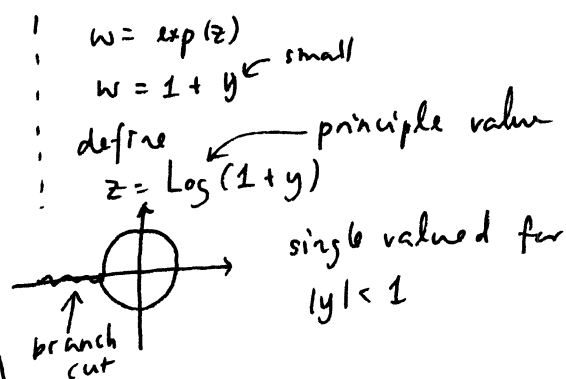 w = exp(z)
w = 1 + y small
define principle value
z = Log(1 + y)
single valued for
|y| < 1
branch
cut